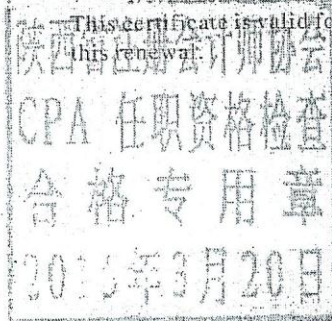 This certificate is valid fo
this renewal.
陕西省注册会计师协会
CPA 任职资格检查
合格专用章
年3月20日